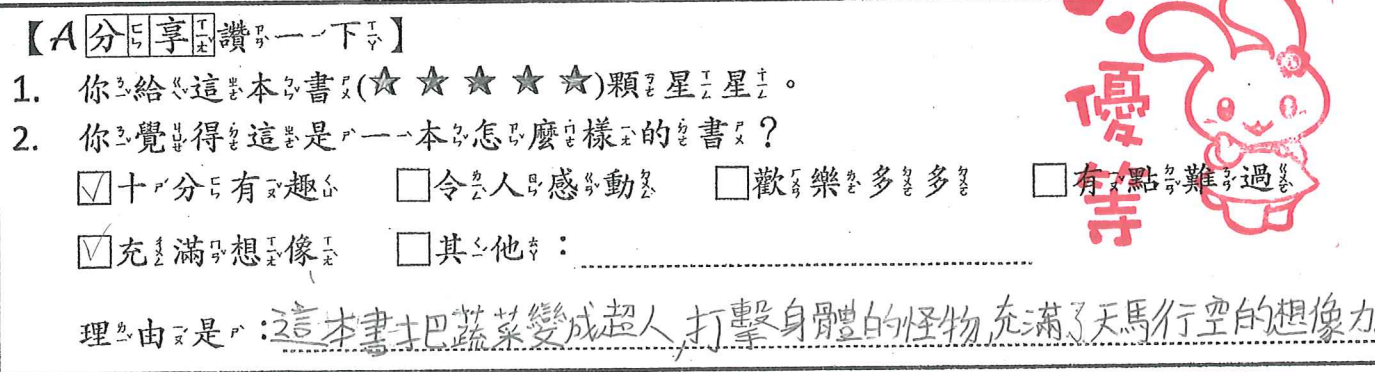 【A分享讚一下】
1. 你給這本書(☆☆☆☆☆)顆星星。
2. 你覺得這是一本怎麼樣的書？
☑十分有趣 □令人感動 □歡樂多多 □有一點難過
☑充滿想像 □其他：
理由是：這本書把蔬菜變成超人,打擊身體的怪物,充滿了天馬行空的想像力
優等